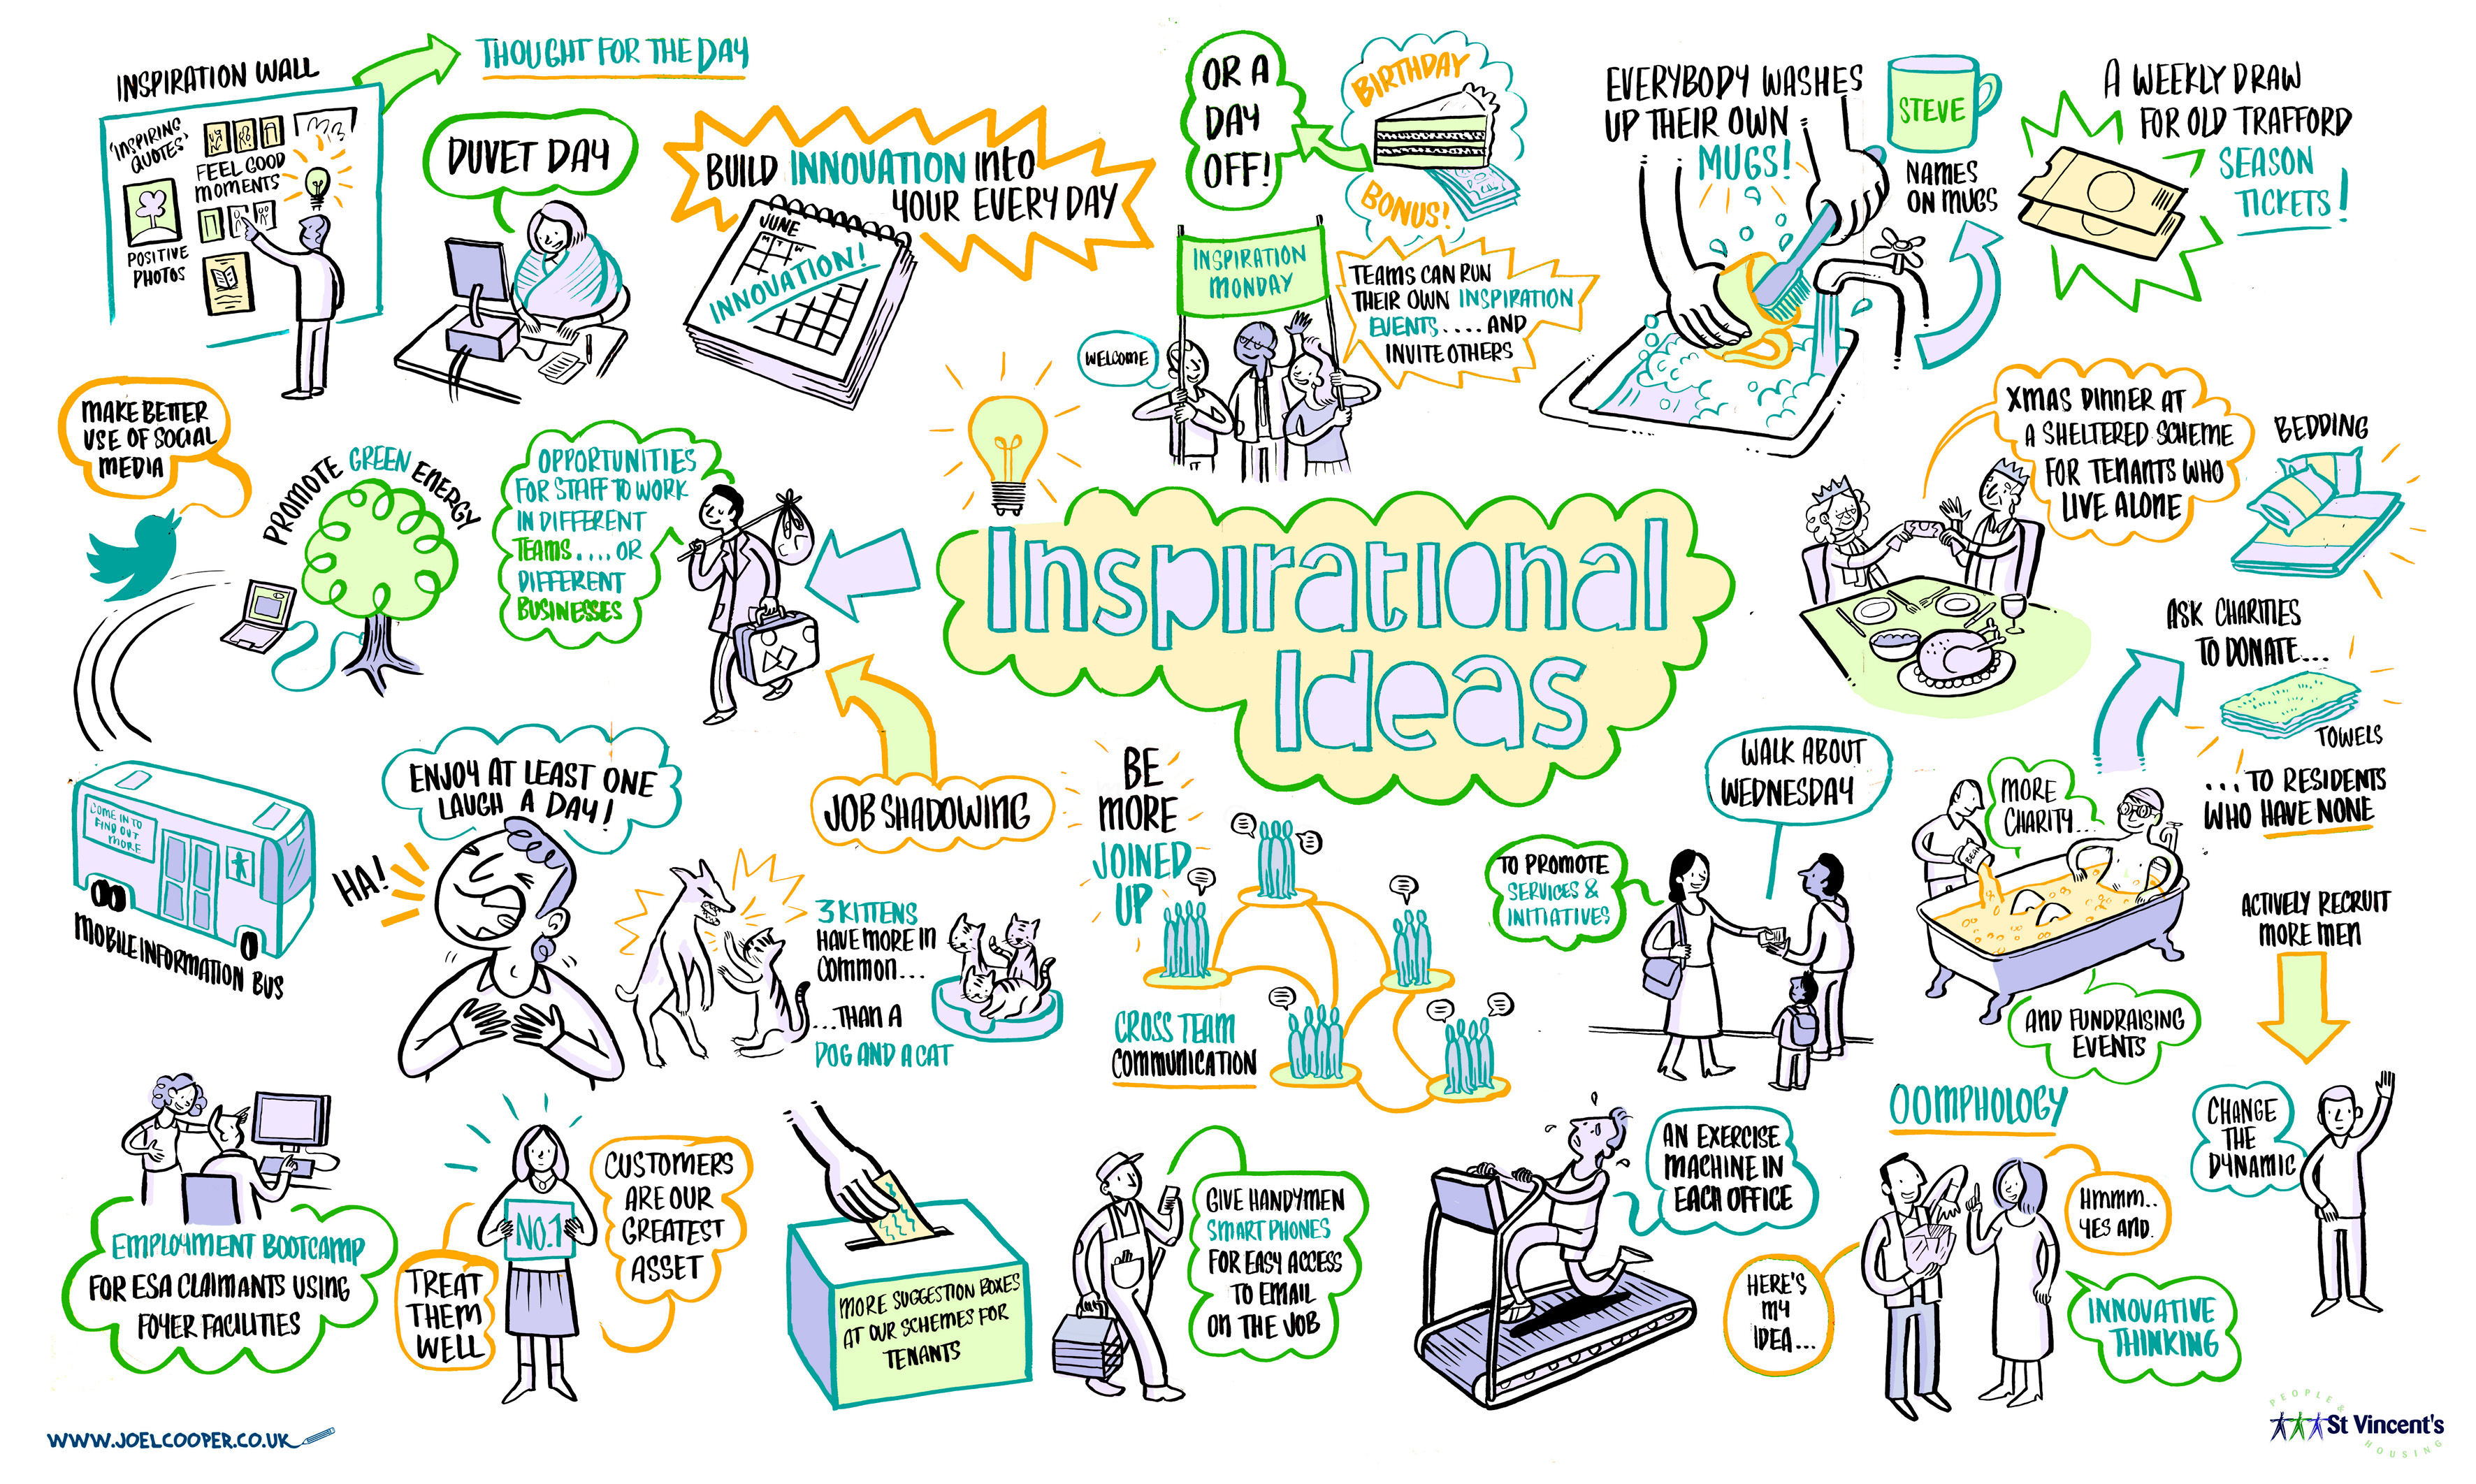 INSPIRATION WALL
THOUGHT FOR THE DAY
'INSPIRING
QUOTES'
FEEL GOOD
MOMENTS
POSITIVE
PHOTOS
DUVET DAY
BUILD INNOVATION INTO
YOUR EVERY DAY
JUNE
M T W
INNOVATION!
OR A
DAY
OFF!
BIRTHDAY
BONUS!
INSPIRATION
MONDAY
WELCOME
TEAMS CAN RUN
THEIR OWN INSPIRATION
EVENTS.... AND
INVITE OTHERS
EVERYBODY WASHES
UP THEIR OWN
MUGS!
STEVE
NAMES
ON MUGS
A WEEKLY DRAW
FOR OLD TRAFFORD
SEASON
TICKETS!
MAKE BETTER
USE OF SOCIAL
MEDIA
PROMOTE GREEN ENERGY
OPPORTUNITIES
FOR STAFF TO WORK
IN DIFFERENT
TEAMS.... OR
DIFFERENT
BUSINESSES
Inspirational
Ideas
XMAS DINNER AT
A SHELTERED SCHEME
FOR TENANTS WHO
LIVE ALONE
BEDDING
ASK CHARITIES
TO DONATE...
TOWELS
...TO RESIDENTS
WHO HAVE NONE
COME IN TO
FIND OUT
MORE
MOBILE INFORMATION BUS
ENJOY AT LEAST ONE
LAUGH A DAY!
HA!
JOB SHADOWING
3 KITTENS
HAVE MORE IN
COMMON...
...THAN A
DOG AND A CAT
BE
MORE
JOINED
UP
CROSS TEAM
COMMUNICATION
WALK ABOUT
WEDNESDAY
TO PROMOTE
SERVICES &
INITIATIVES
MORE
CHARITY...
BEANS
AND FUNDRAISING
EVENTS
ACTIVELY RECRUIT
MORE MEN
CHANGE
THE
DYNAMIC
EMPLOYMENT BOOTCAMP
FOR ESA CLAIMANTS USING
FOYER FACILITIES
NO.1
TREAT
THEM
WELL
CUSTOMERS
ARE OUR
GREATEST
ASSET
MORE SUGGESTION BOXES
AT OUR SCHEMES FOR
TENANTS
GIVE HANDYMEN
SMART PHONES
FOR EASY ACCESS
TO EMAIL
ON THE JOB
AN EXERCISE
MACHINE IN
EACH OFFICE
OOMPHOLOGY
HERE'S
MY
IDEA...
HMMM..
YES AND.
INNOVATIVE
THINKING
WWW.JOELCOOPER.CO.UK
PEOPLE &
St Vincent's
HOUSING